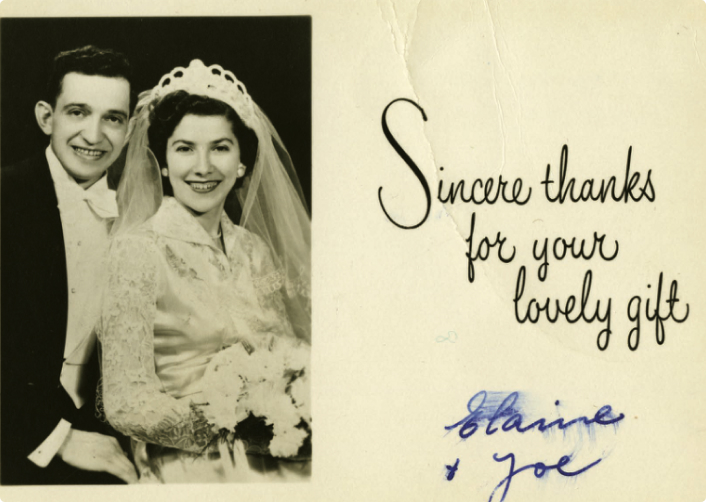 Sincere thanks
for your
lovely gift
Elaine
& Joe